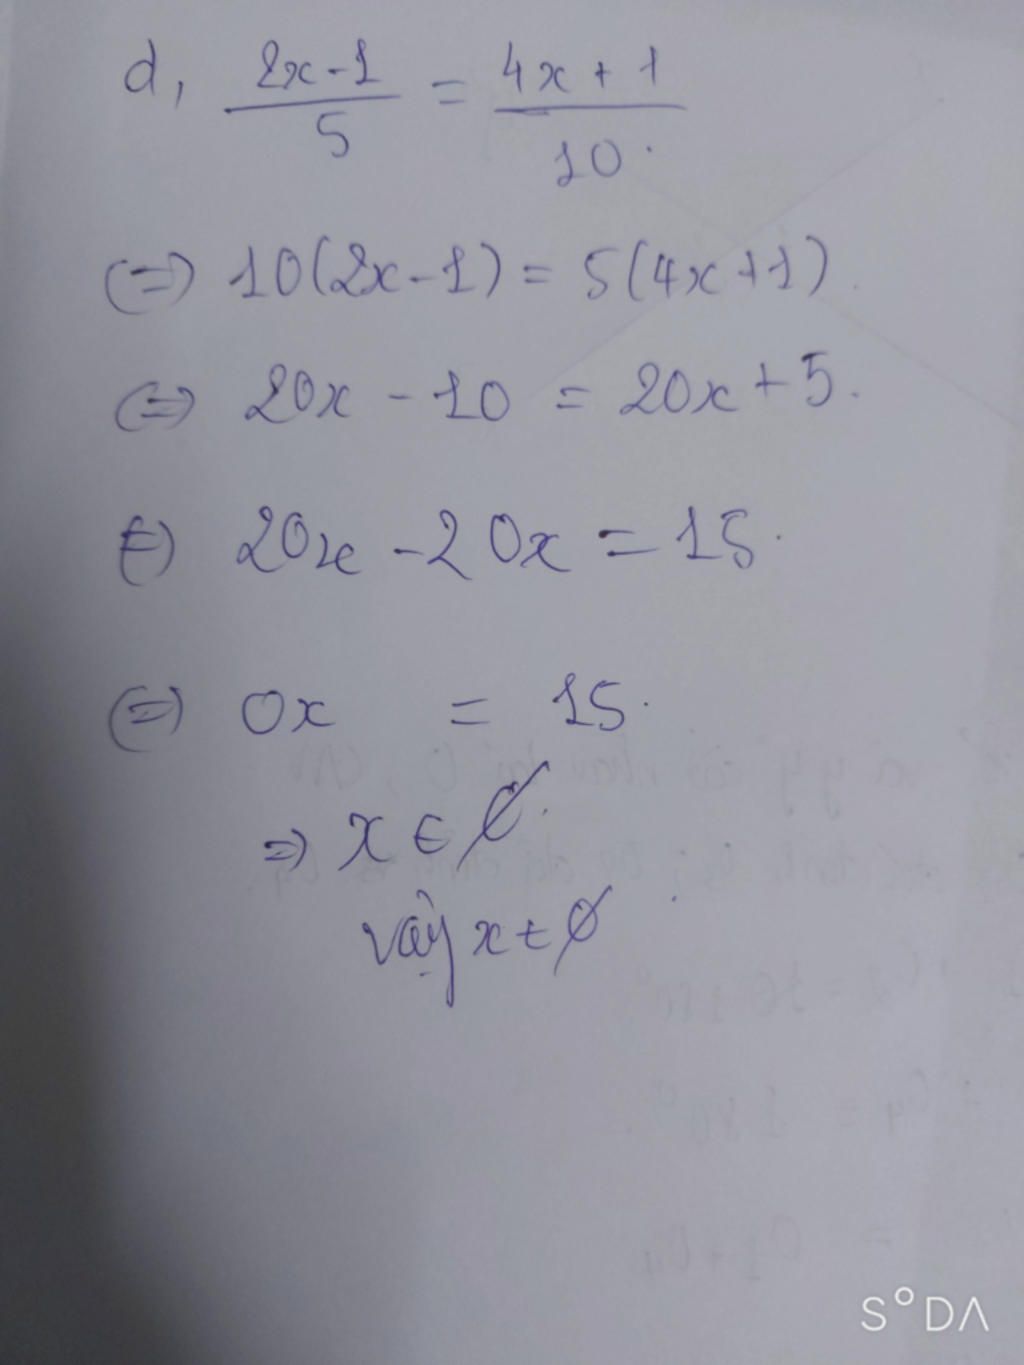 d, \frac{2x-1}{5} = \frac{4x+1}{10}.
(=) 10(2x-1) = 5(4x+1).
(=) 20x - 10 = 20x + 5.
(=) 20x - 20x = 15.
(=) 0x = 15.
=> x ∈ ∅.
vậy x ∈ ∅
S°DA